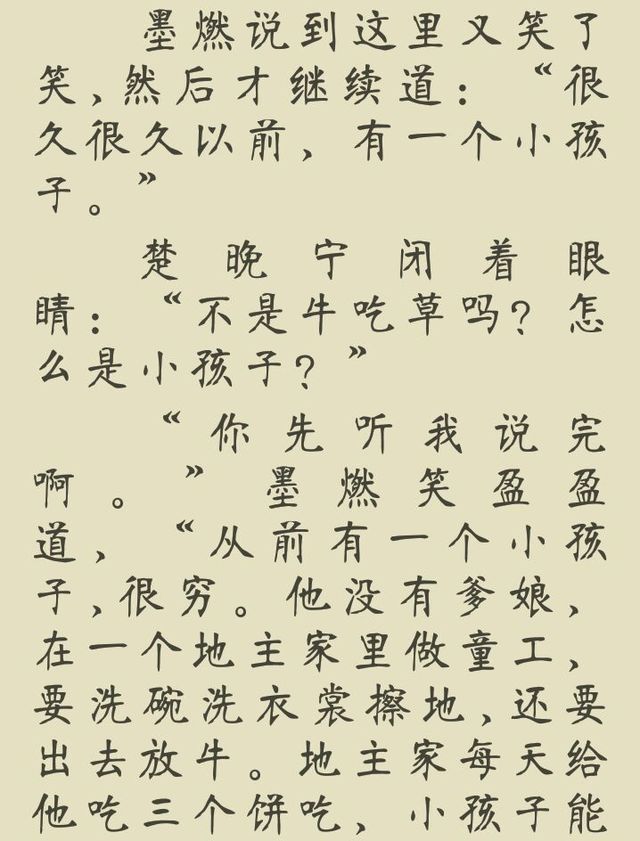 墨燃说到这里又笑了
笑,然后才继续道：“很
久很久以前，有一个小孩
子。”
楚晚宁闭着眼
睛：“不是牛吃草吗？怎
么是小孩子？”
“你先听我说完
啊。”墨燃笑盈盈
道，“从前有一个小孩
子,很穷。他没有爹娘，
在一个地主家里做童工，
要洗碗洗衣裳擦地,还要
出去放牛。地主家每天给
他吃三个饼吃，小孩子能